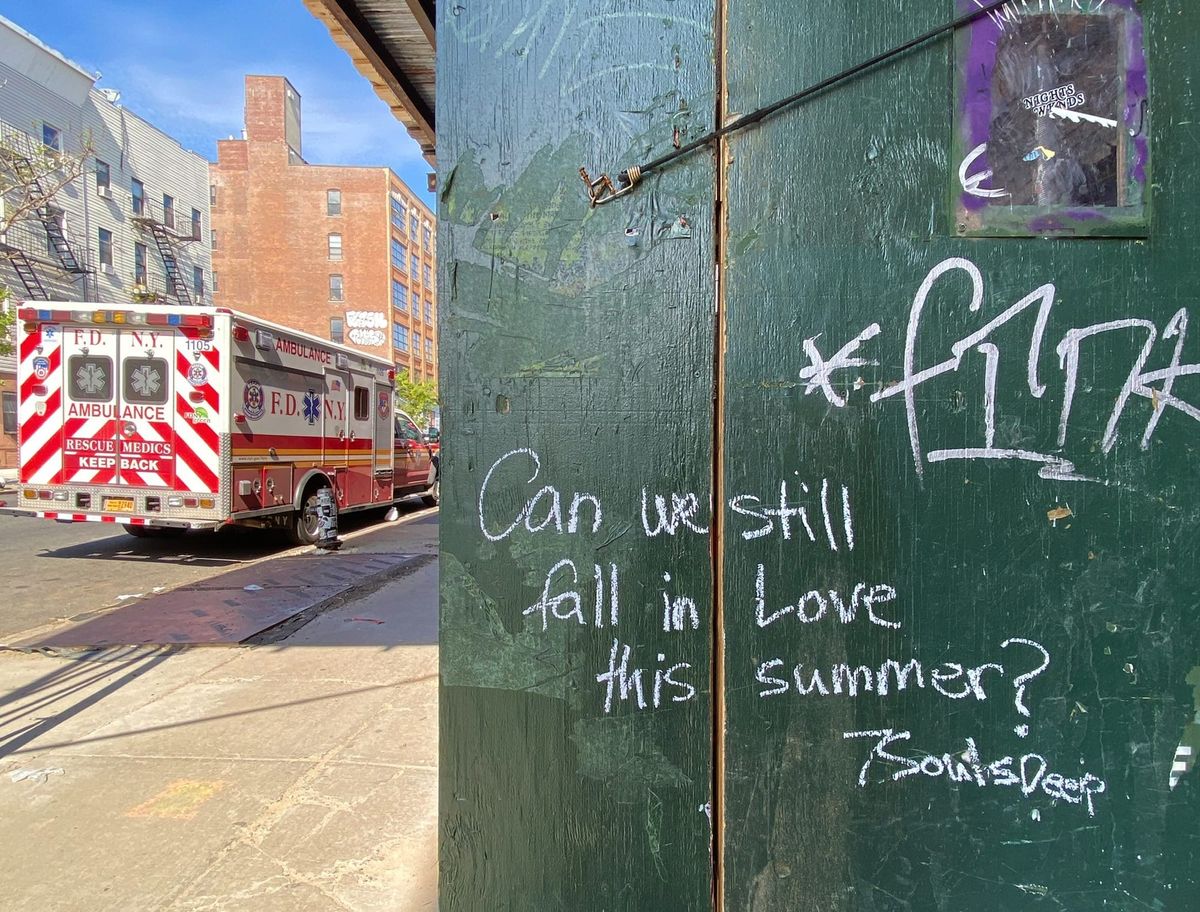 F.D. N.Y.
1105
AMBULANCE
RESCUE MEDICS
KEEP BACK
AMBULANCE
F.D. N.Y.
NIGHTS
Can we still
fall in Love
this summer?
7SoulsDeep